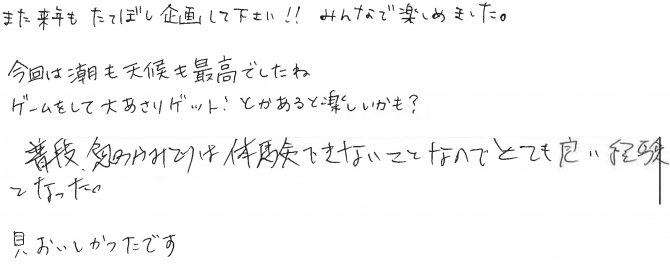 また来年も たてぼし企画して下さい!! みんなで楽しめました。
今回は潮も天候も最高でしたね
ゲームをして大あさりゲット! とかあると楽しいかも?
普段 は体験できないことなのでとても良い経験
となった。
貝おいしかったです